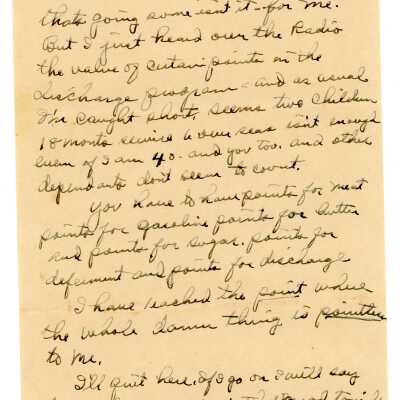 thats going some isn't it - for me.
But I just heard over the Radio
the value of certain points in the
discharge program - and as usual
I'm caught short, seems two children
18 months service & over seas isn't enough
even if I am 40 - and you too. and other
dependants dont seem to count.
You have to have points for meat
points for gasoline points for butter
and points for sugar. points for
deferment and points for discharge
I have reached the point where
the whole damn thing is pointless
to me.
I'll quit here, if I go on I will say